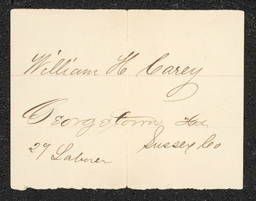 William H Carey
Georgetown Del
Sussex Co
27 Laborer